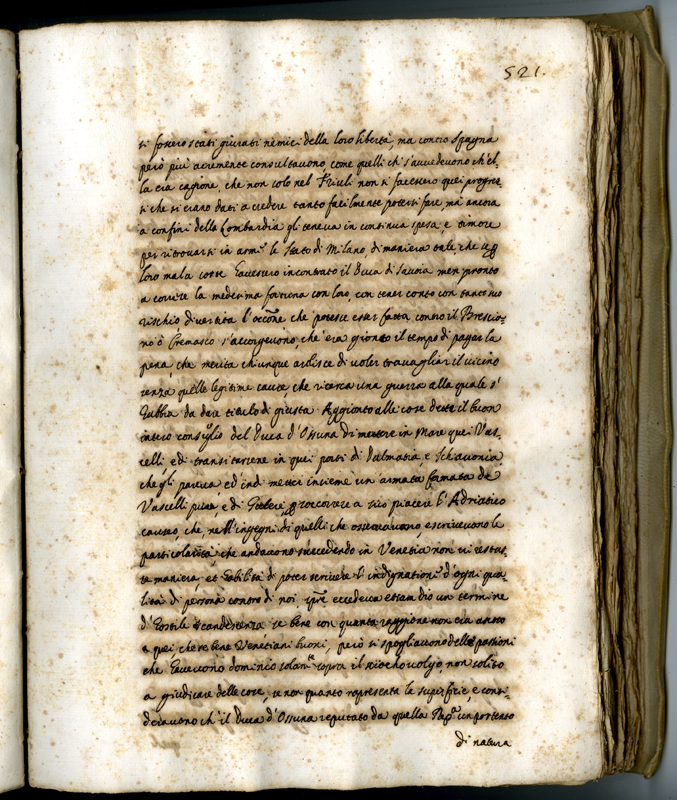 521.
si fossero stati giurati nemici della loro libertà, ma contro Spagna
però più acremente consultavono come quelli ch' s'auuedeuono ch'el-
la era cagione, che non solo nel Friuli non si facessero quei progres-
si che si erano dati a credere tanto facilmente potersi fare, ma ancora
a confini della Lombardia gli teneua in continua spesa, e timore
per ritrouarsi in arme lo stato di Milano, di maniera tale, che
loro mala sorte hauessero incontrato il Duca di Sauoia men pronto
a correre la medesima fortuna con loro, con tener conto con tanto suo
rischio diuertita l'occõne che potesse esser fatta contro il Brescia-
no ò Cremasco s'accorgeuono ch'era gionto il tempo di pagar la
pena, che merita chiunque ardisce di uoler trauagliar il uicino
senza quelle legitime cause, che ricerca una guerra alla quale s'
habbia da dare titulo di giusta. Aggionto alle cose dette il buon
intero consiglio del Duca d'Ossuna di mettere in Mare quei Vas-
celli, e di transitarsene in quei porti di Dalmatia, e Schiauonia,
che gli pareua ed'indi metter insieme un armata formata de
Vascelli pura, e di Galere, trascorrere a suo piacere l'Adriatico
causò, che, nell'ingegni di quelli che osseruauono, e scriueuono le
particolarità, che andauono succedendo in Venetia non ui restas-
se maniera, et habilità di poter scriuere l'indignatione d'ogni qua-
lità di persona contro di noi, eccedeua etiam dio un termine
d'hostile scandescenza se bene con quanta raggione non era ascoso
a quei che se bene Venetiani buoni, però si spogliauono della passioni
che haueuono dominio solamte sopra il sciocho uolgo, non solito
a giudicare delle cose, se non quanto rapresenta la superficie, e consi-
derauono ch'il Duca d'Ossuna reputato da quella Rep.ca un portento
di natura